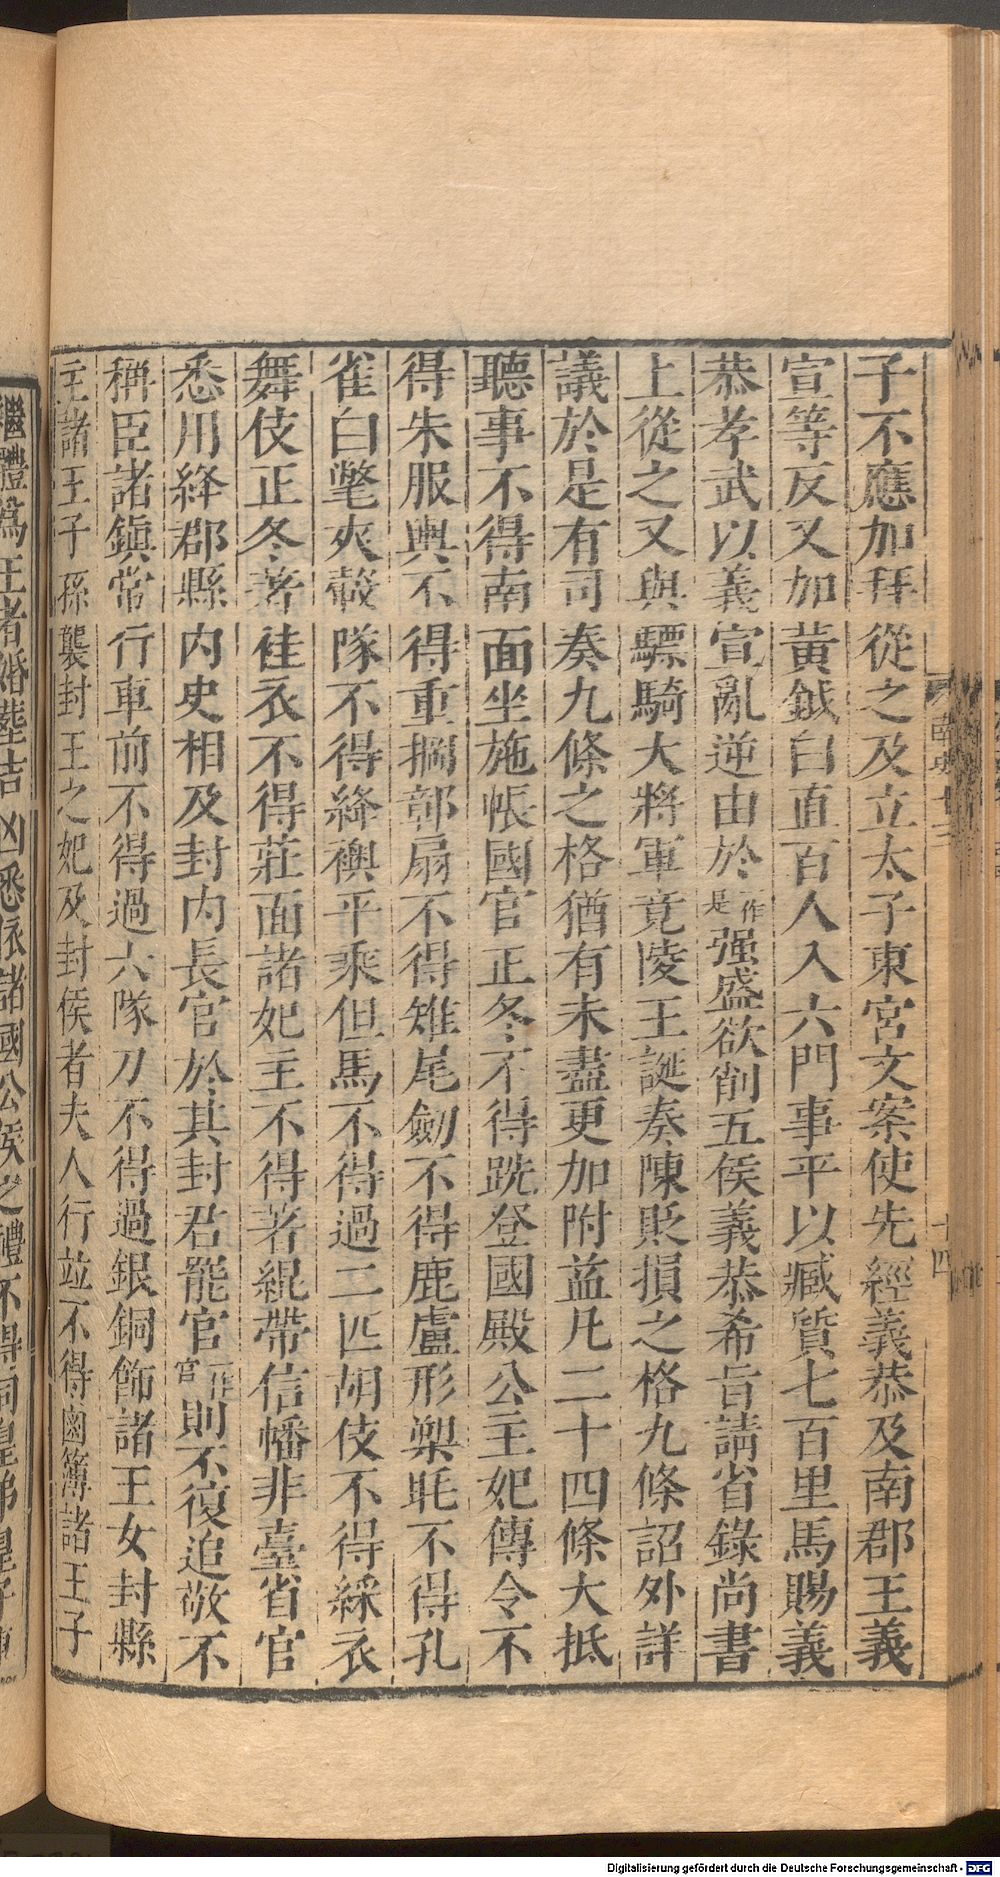 子不應加拜從之及立太子東宮文案使先經義恭及南郡王義
宣等反又加黃鉞白直百人入六門事平以臧質七百里馬賜義
恭孝武以義宣亂逆由於一作是强盛欲削五侯義恭希旨請省錄尚書
上從之又與驃騎大將軍竟陵王誕奏陳貶損之格九條詔外詳
議於是有司奏九條之格猶有未盡更加附益凡二十四條大抵
聽事不得南面坐施帳國官正冬不得跣登國殿公主妃傳令不
得朱服輿不得重㭎鄣扇不得雉尾劒不得鹿盧形槊毦不得孔
雀白氅夾轂隊不得絳襖平乘但馬不得過二匹胡伎不得綵衣
舞伎正冬著袿衣不得莊面諸妃主不得著緄帶信幡非臺省官
悉用絳郡縣內史相及封內長官於其封君罷官一作官則不復追敬不
稱臣諸鎮常行車前不得過六隊刀不得過銀銅飾諸王女封縣
主諸王子孫襲封王之妃及封侯者夫人行竝不得鹵簿諸王子
繼體爲王者婚葬吉凶悉依諸國公侯之禮不得同皇弟皇子車
南史十三
十四
Digitalisierung gefördert durch die Deutsche Forschungsgemeinschaft - DFG